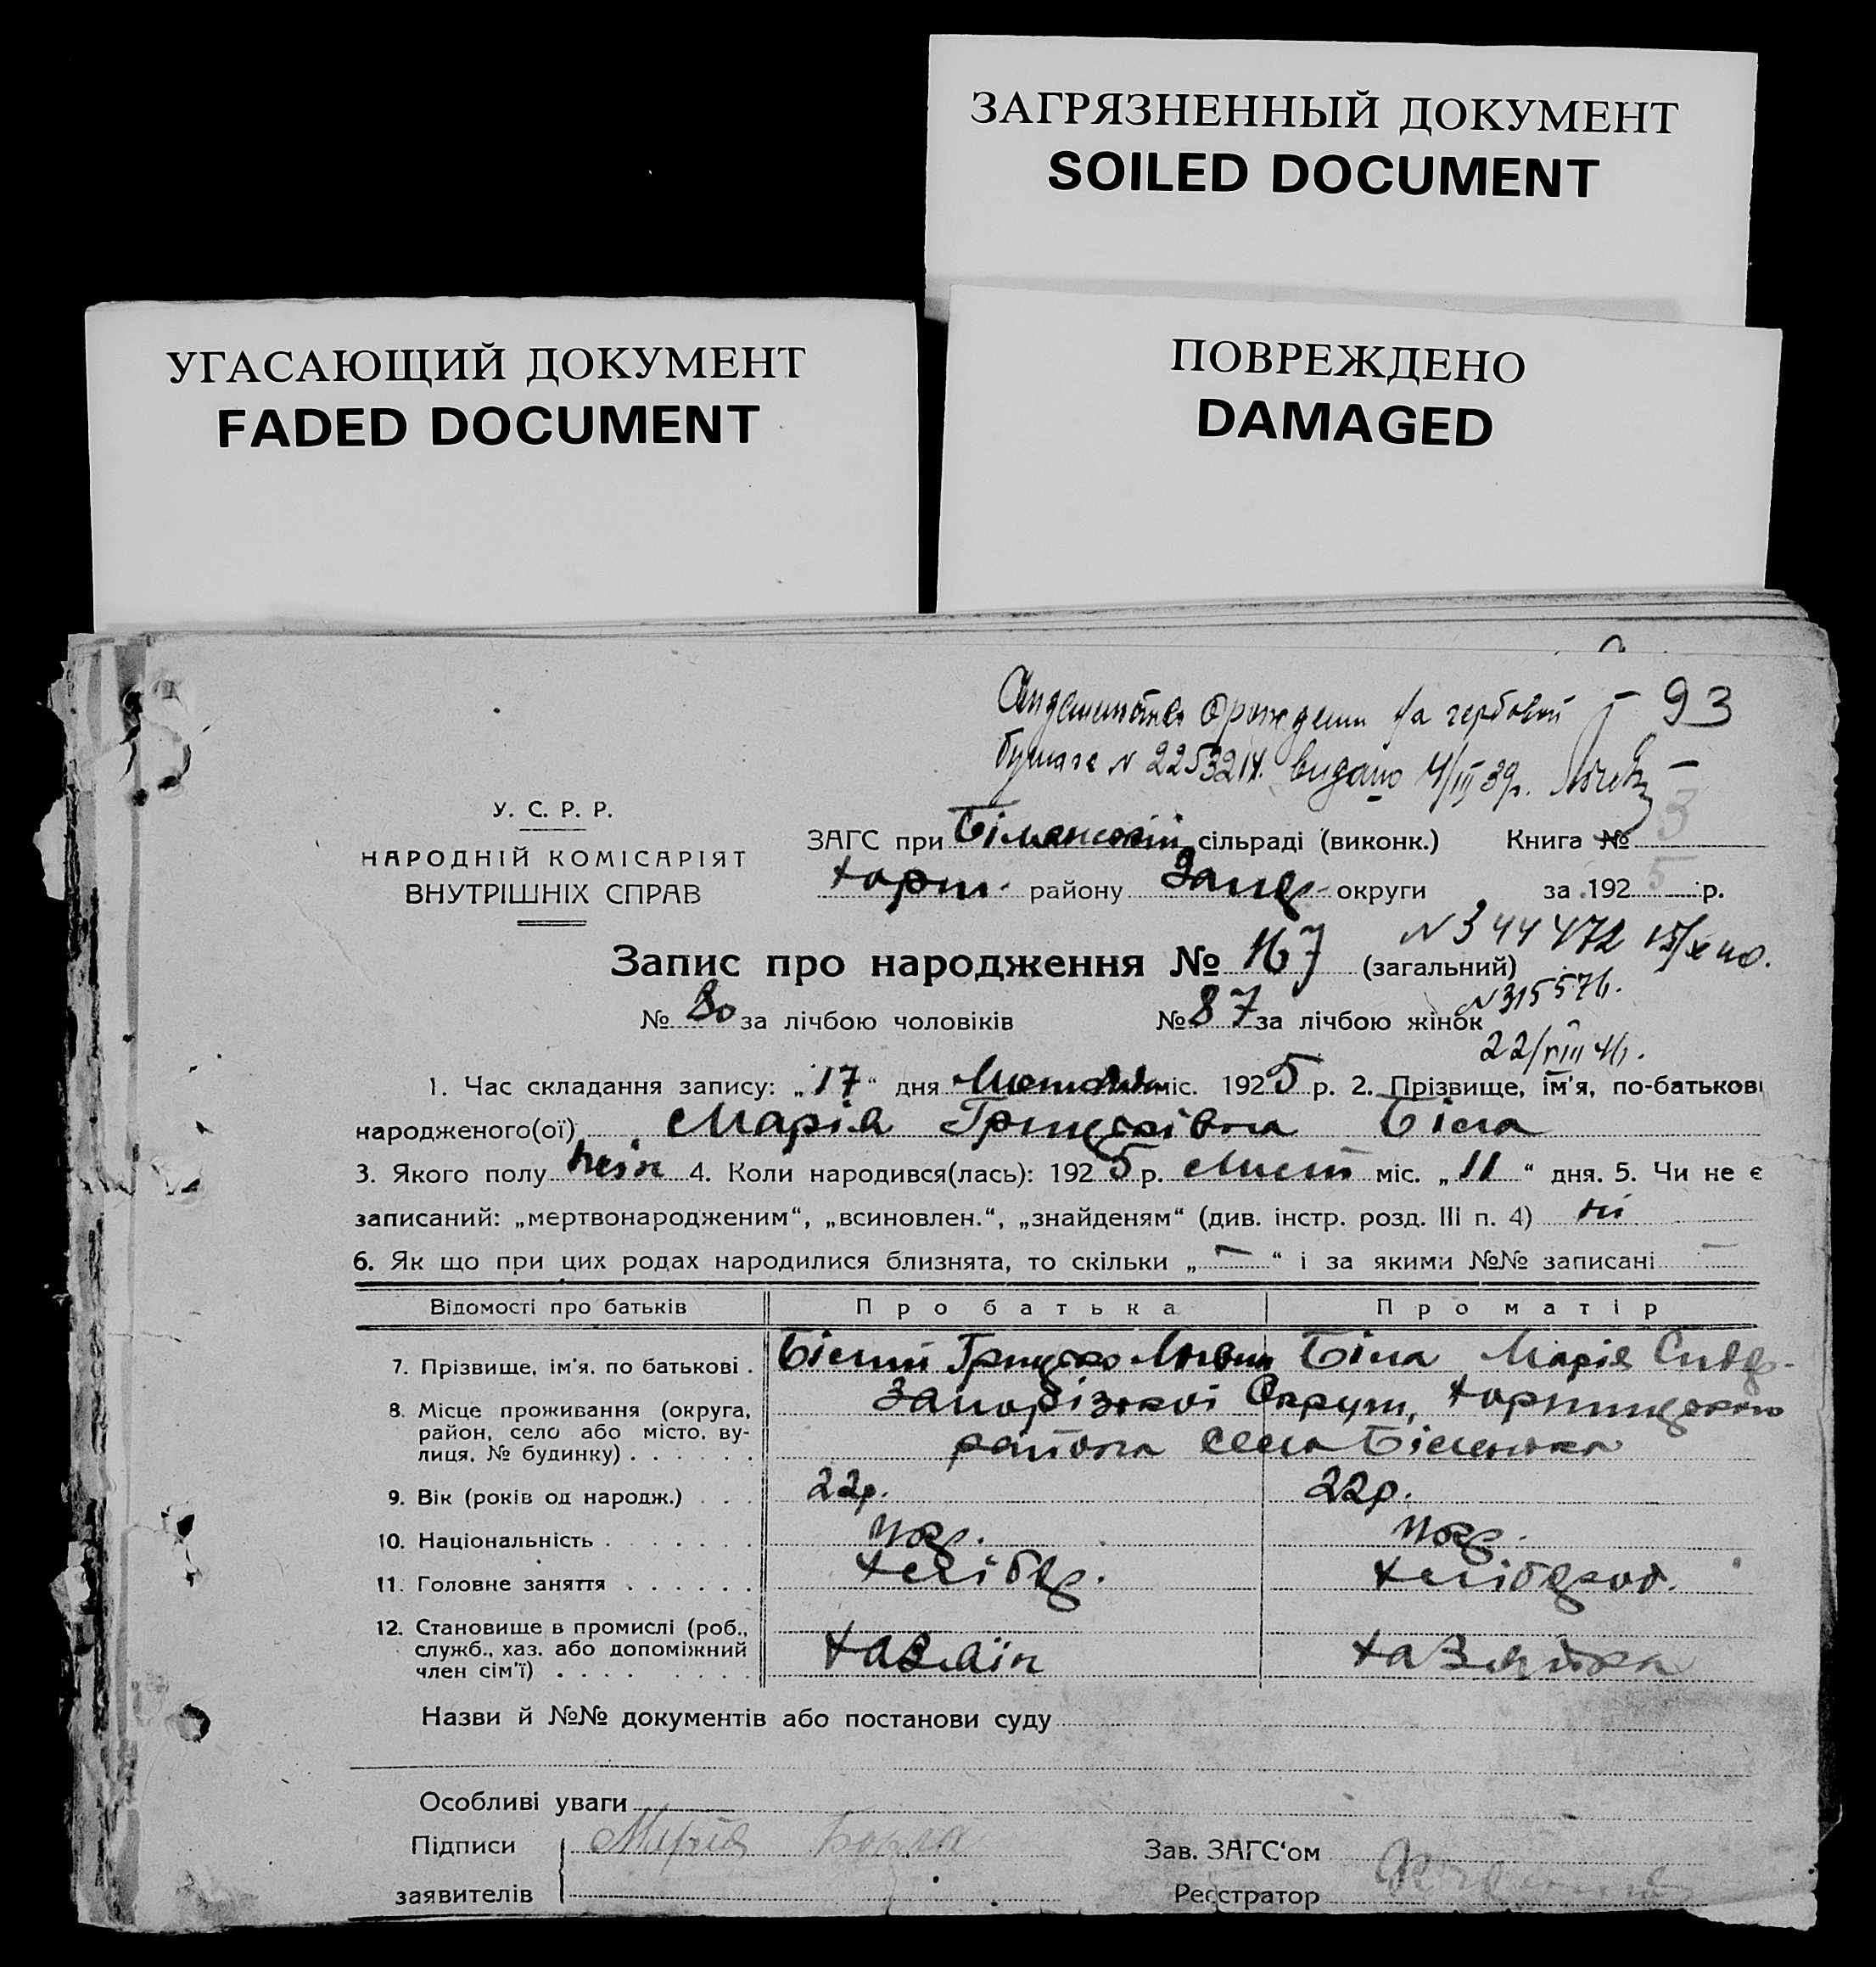 ЗАГРЯЗНЕННЫЙ ДОКУМЕНТ
SOILED DOCUMENT
УГАСАЮЩИЙ ДОКУМЕНТ
FADED DOCUMENT
ПОВРЕЖДЕНО
DAMAGED
о рождении на гербовой
93
бумаге N видано 4/III 39р.
У. С. Р. Р.
НАРОДНІЙ КОМІСАРІЯТ
ВНУТРІШНІХ СПРАВ
ЗАГС при Біленській сільраді (виконк.) Книга № 3
Хорт. району Запор. округи за 1925 р.
N 344472 15/X 40.
Запис про народження № 167 (загальний)
N 315576.
№ 80 за лічбою чоловіків № 87 за лічбою жінок
22/VIII 41.
1. Час складання запису: „17“ дня міс. 1925 р. 2. Прізвище, ім'я, по-батькові
народженого(ої) Марія Грицьківна Біла
3. Якого полу жін 4. Коли народився(лась): 1925 р. Лист міс. „11“ дня. 5. Чи не є
записаний: „мертвонародженим“, „всиновлен.“, „знайденям“ (див. інстр. розд. III п. 4) ні
6. Як що при цих родах народилися близнята, то скільки „ — “ і за якими №№ записані —
Відомості про батьків Про батька Про матір
7. Прізвище, ім'я, по батькові . Білий Грицько Біла Марія
8. Місце проживання (округа, район, село або місто, вулиця, № будинку) . . . . . . Запорізької Округи, Хортицького
района села Біленька
9. Вік (років од народж.) . . . 22р. 22р.
10. Національність . . . . . . .
11. Головне заняття . . . . . . хлібор. хлібороб.
12. Становище в промислі (роб., служб., хаз. або допоміжний член сім'ї) . . . . . . . . хазяїн хазяйка
Назви й №№ документів або постанови суду
Особливі уваги
Підписи Марія
Зав. ЗАГС'ом
заявителів
Реєстратор